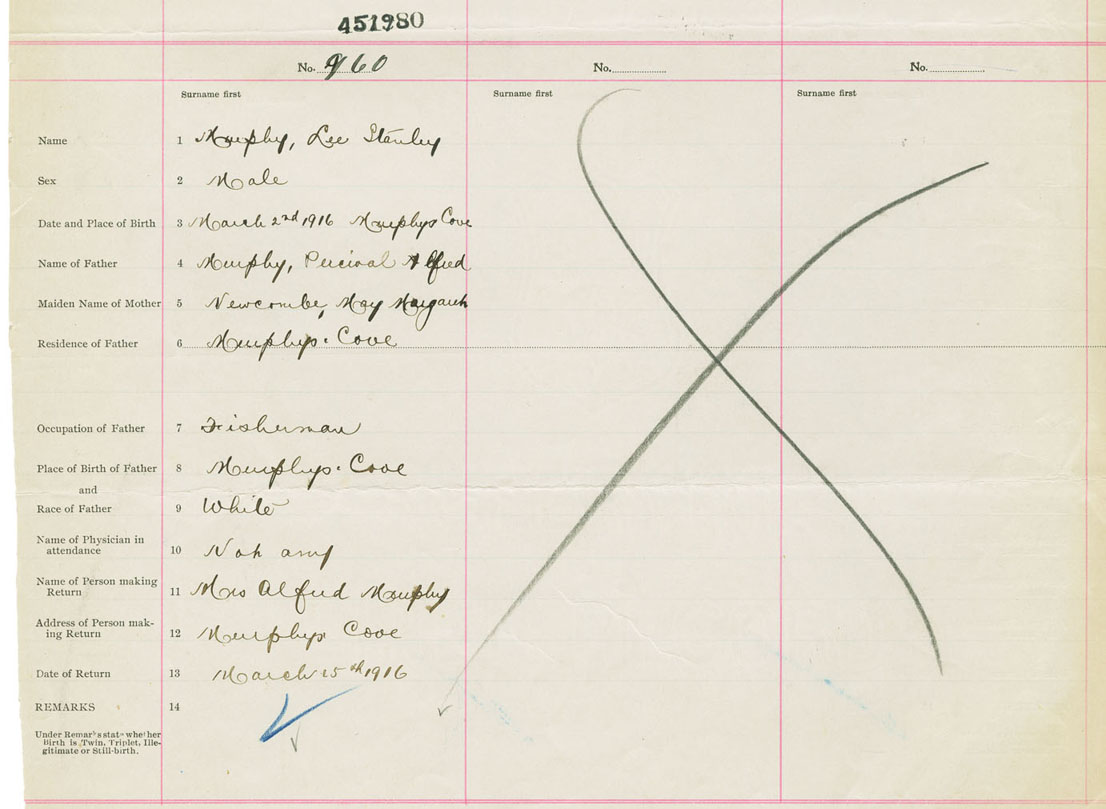 451980
No. 960 No. No.
Surname first Surname first Surname first
Name 1 Murphy, Lee Stanley
Sex 2 Male
Date and Place of Birth 3 March 2nd 1916 Murphys Cove
Name of Father 4 Murphy, Percival Alfred
Maiden Name of Mother 5 Newcombe, May Margaret
Residence of Father 6 Murphys Cove
Occupation of Father 7 Fisherman
Place of Birth of Father 8 Murphys Cove
and
Race of Father 9 White
Name of Physician in
attendance 10 Not any
Name of Person making
Return 11 Mrs Alfred Murphy
Address of Person mak-
ing Return 12 Murphys Cove
Date of Return 13 March 15th 1916
REMARKS 14
Under Remarks state whether
Birth is Twin, Triplet, Ille-
gitimate or Still-birth.